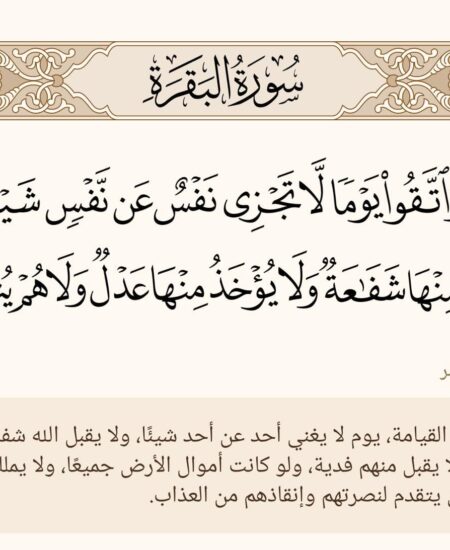 سُورَةُ البَقَرَةِ
ٱتَّقُواْ يَوۡمٗا لَّا تَجۡزِي نَفۡسٌ عَن نَّفۡسٖ
شَفَٰعَةٞ وَلَا يُؤۡخَذُ مِنۡهَا عَدۡلٞ وَلَا هُمۡ
القيامة، يوم لا يغني أحد عن أحد شيئًا، ولا يقبل الله
يقبل منهم فدية، ولو كانت أموال الأرض جميعًا، ولا
يتقدم لنصرتهم وإنقاذهم من العذاب.